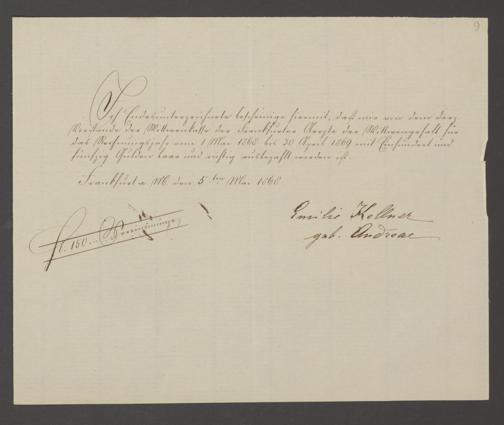 9
Ich Endesunterzeichnete bescheinige hiermit, daß mir von dem derz.
Vorstande der Wittwenkasse der Frankfurter Aerzte der Wittwengehalt für
das Rechnungsjahr vom 1 Mai 1868 bis 30 April 1869 mit Einhundert und
fünfzig Gulden baar und richtig ausbezahlt worden ist.
Frankfurt a. M. den 5ten Mai 1868
Emilie Kellner
geb. Andreae
fl. 150.